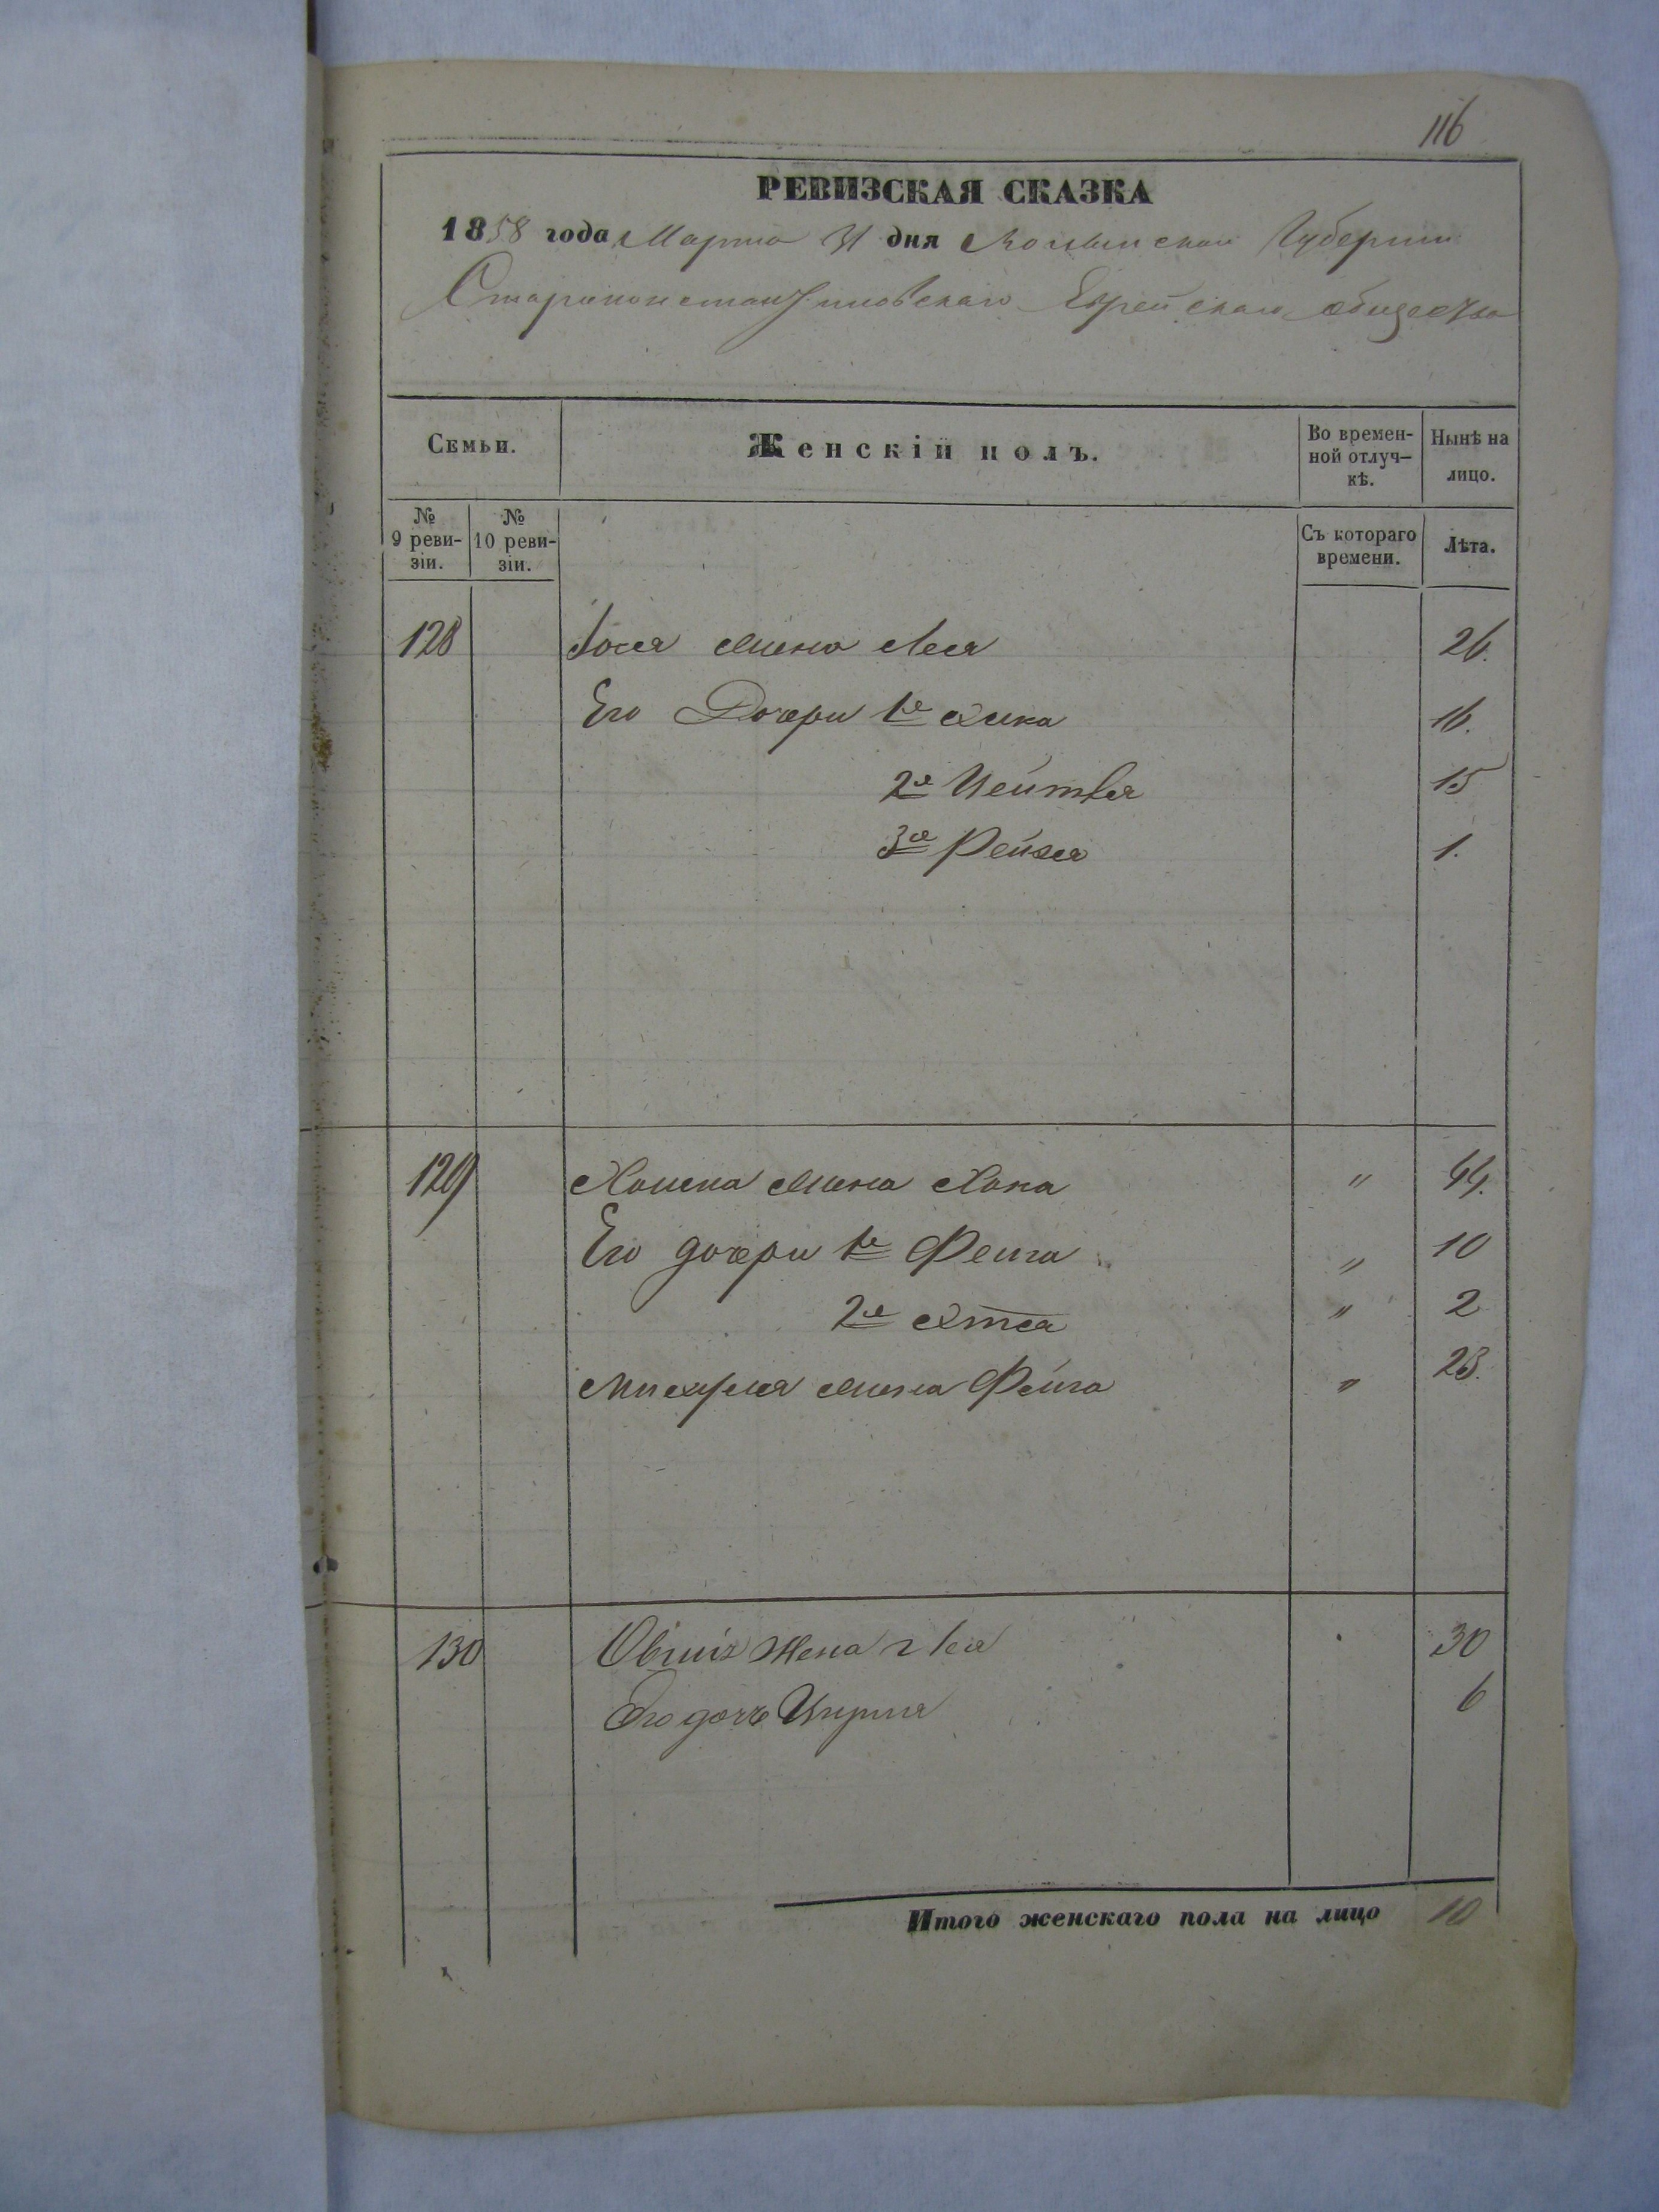 116
РЕВИЗСКАЯ СКАЗКА
1858 года Марта 31 дня Волынской Губернии
Староконстантиновскаго Еврейскаго общества
Семьи.
Женскій полъ.
Во времен-
ной отлуч-
кѣ.
Нынѣ на
лицо.
№
9 реви-
зіи.
№
10 реви-
зіи.
Съ котораго
времени.
Лѣта.
128 жена Лея 26.
Его Дочери 1я Хика 16.
2я 15
3я Рейзя 1.
129 жена Хана " 44.
Его дочери 1я Фейга " 10
2я " 2
жена Фейга " 23.
130 жена 2 Лея 30
Его дочь 6
Итого женскаго пола на лицо 10